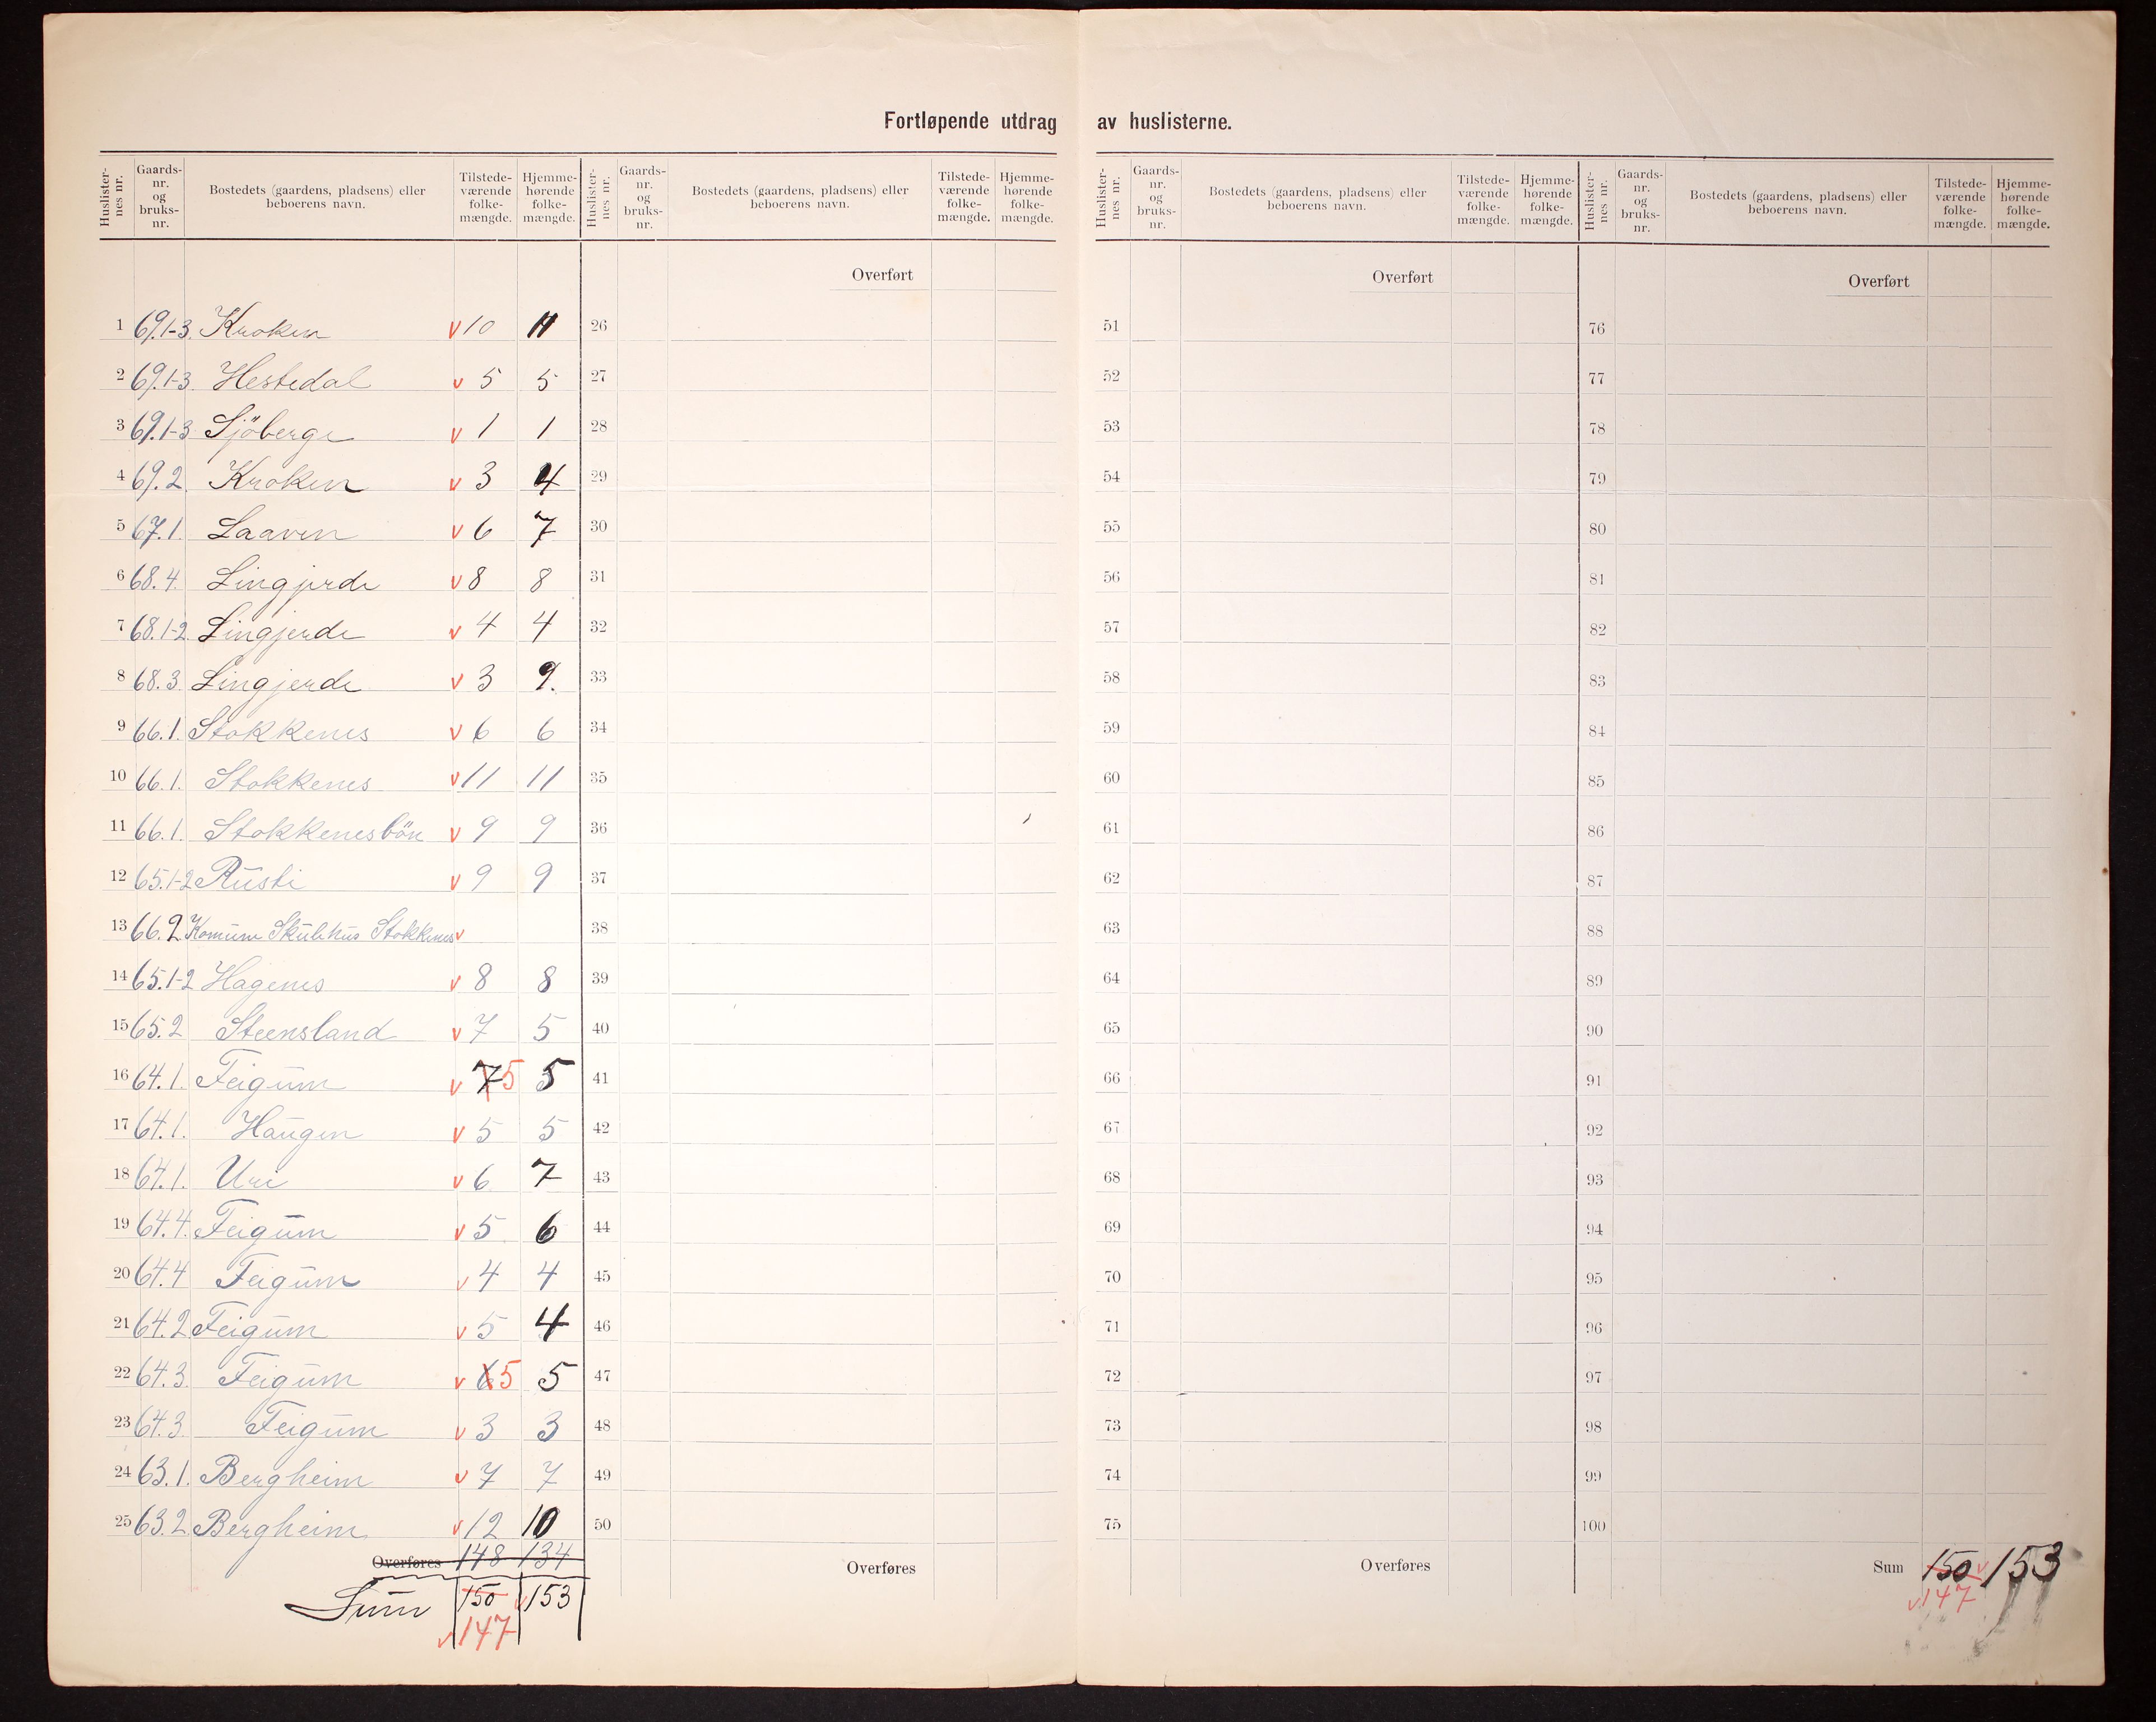 Fortløpende utdrag av huslisterne.
Huslister-nes nr. Gaards-nr. og bruks-nr. Bostedets (gaardens, pladsens) eller beboerens navn. Tilstede-værende folke-mængde. Hjemme-hørende folke-mængde. Huslister-nes nr. Gaards-nr. og bruks-nr. Bostedets (gaardens, pladsens) eller beboerens navn. Tilstede-værende folke-mængde. Hjemme-hørende folke-mængde. Huslister-nes nr. Gaards-nr. og bruks-nr. Bostedets (gaardens, pladsens) eller beboerens navn. Tilstede-værende folke-mængde. Hjemme-hørende folke-mængde. Huslister-nes nr. Gaards-nr. og bruks-nr. Bostedets (gaardens, pladsens) eller beboerens navn. Tilstede-værende folke-mængde. Hjemme-hørende folke-mængde.
Overført Overført Overført
1 69.1-3 Kroken v 10 11 26 51 76
2 69.1-3 Hestedal v 5 5 27 52 77
3 69.1-3 Sjöberge v 1 1 28 53 78
4 69.2 Kroken v 3 4 29 54 79
5 67.1. Laaven v 6 7 30 55 80
6 68.4. Lingjerde v 8 8 31 56 81
7 68.1-2 Lingjerde v 4 4 32 57 82
8 68.3 Lingjerde v 3 9. 33 58 83
9 66.1. Stokkenes v 6 6 34 59 84
10 66.1. Stokkenes v 11 11 35 60 85
11 66.1. Stokkenesbön v 9 9 36 61 86
12 65.1-2 Rusti v 9 9 37 62 87
13 66.2 Komune Skulehus Stokkenes v 38 63 88
14 65.1-2 Hagenes v 8 8 39 64 89
15 65.2 Steensland v 7 5 40 65 90
16 64.1. Feigum v 7 5 5 41 66 91
17 64.1. Haugen v 5 5 42 67 92
18 64.1. Uri v 6 7 43 68 93
19 64.4. Feigum v 5 6 44 69 94
20 64.4 Feigum v 4 4 45 70 95
21 64.2 Feigum v 5 4 46 71 96
22 64.3. Feigum v 6 5 5 47 72 97
23 64.3 Feigum v 3 3 48 73 98
24 63.1. Bergheim v 7 7 49 74 99
25 63.2 Bergheim v 12 10 50 75 100
Overføres 148 134 Overføres Overføres Sum 150 v 153
Sum 150 v 153 v 147
v 147